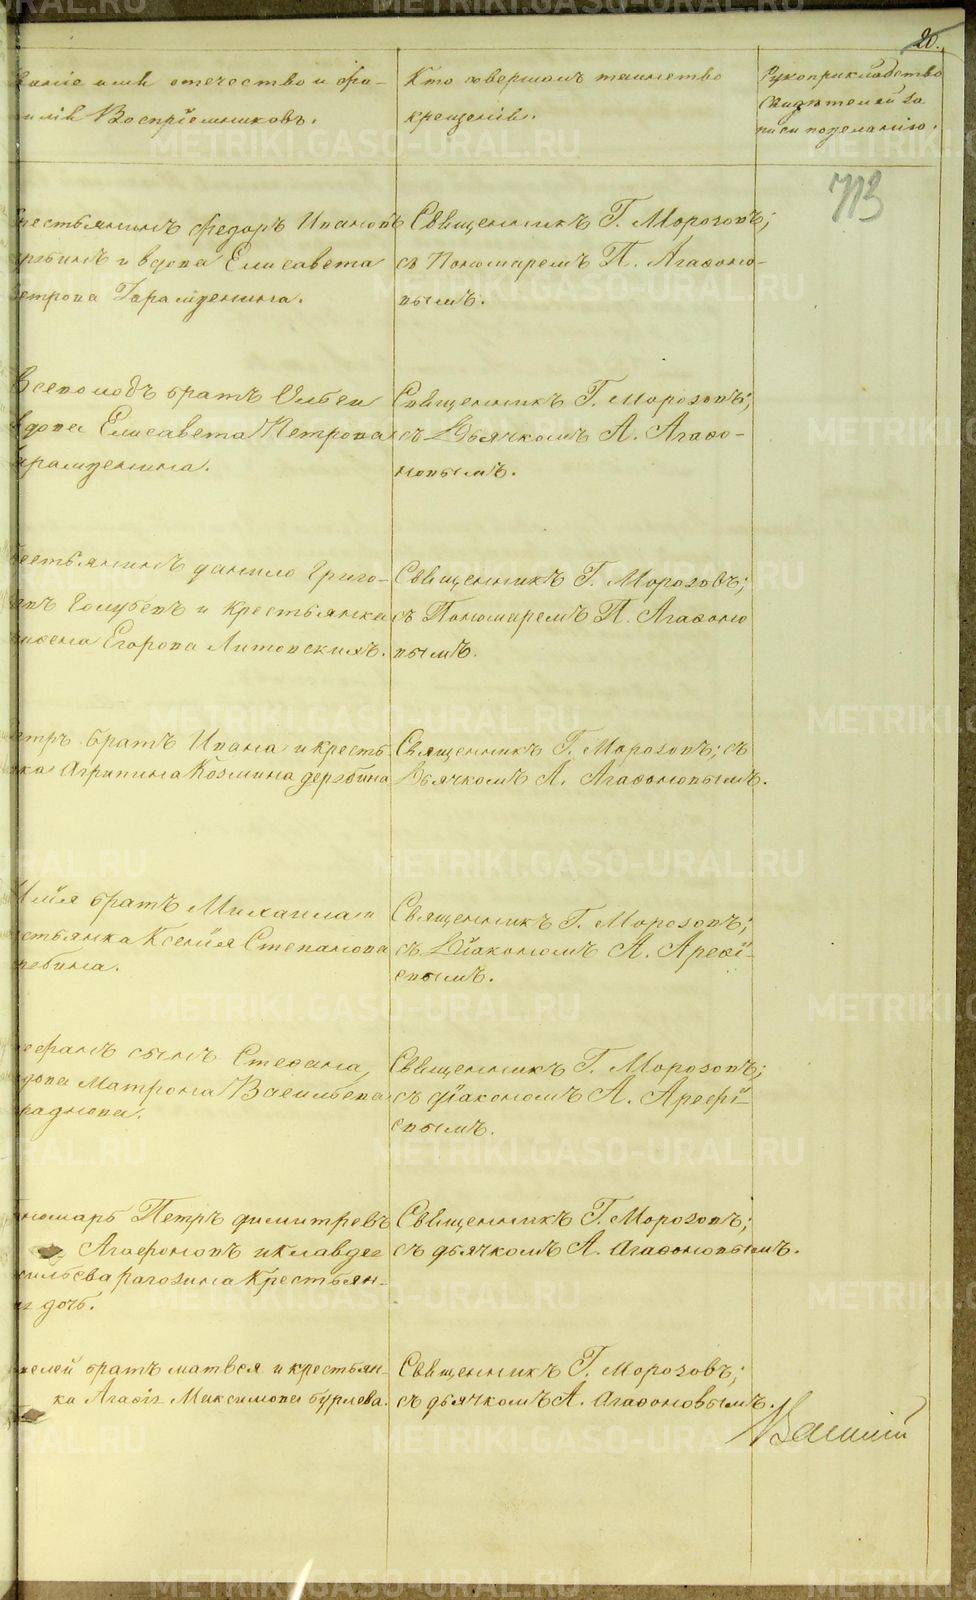 20.
ваніе имѣ отечество и фа-
миліѣ Воспріемниковъ.
Кто совершалъ таинство
крещеніѣ.
Рукоприкладство
свидѣтелей за
писи пожеланію.
713
рестьянинъ Федоръ Ивановъ
ргбинъ и вдова Елисавета
етрова
Священникъ Г. Морозовъ;
съ Пономаремъ П. Агаѳоно-
вымъ.
Всеволодъ братъ Ольги
вдова Елисавета Петрова
Священникъ Г. Морозовъ;
съ Дьячкомъ А. Агаѳо-
новымъ.
рестьянинъ данило Григо-
евъ Голубевъ и крестьянка
Егорова Литовскихъ.
Священникъ Г. Морозовъ;
съ Пономаремъ П. Агаѳоно
вымъ.
етръ братъ Ивана и кресть-
нка Агрипина Козмина дергбина
Священникъ Г. Морозовъ; съ
Дьячкомъ А. Агаѳоновымъ.
Илія братъ Михаила и
стьянка Ксенія Степанова
ргбина.
Священникъ Г. Морозовъ;
съ Діакономъ А. Ареѳі-
евымъ.
ефанъ сынъ Стефана,
дова Матрона Васильева
Священникъ Г. Морозовъ;
съ діакономъ А. Арефі-
евымъ.
номарь Петръ димитревъ
Агафоновъ и клавдеа
сильева рагозина Крестьян-
дочь.
Священникъ Г. Морозовъ;
съ дьячкомъ А. Агаѳоновымъ.
мелей братъ матвея и крестьян-
ка Агаѳіа Максимова бурлева.
Священникъ Г. Морозовъ;
съ дьячкомъ А. Агаѳоновымъ.
METRIKI.GASO-URAL.RU